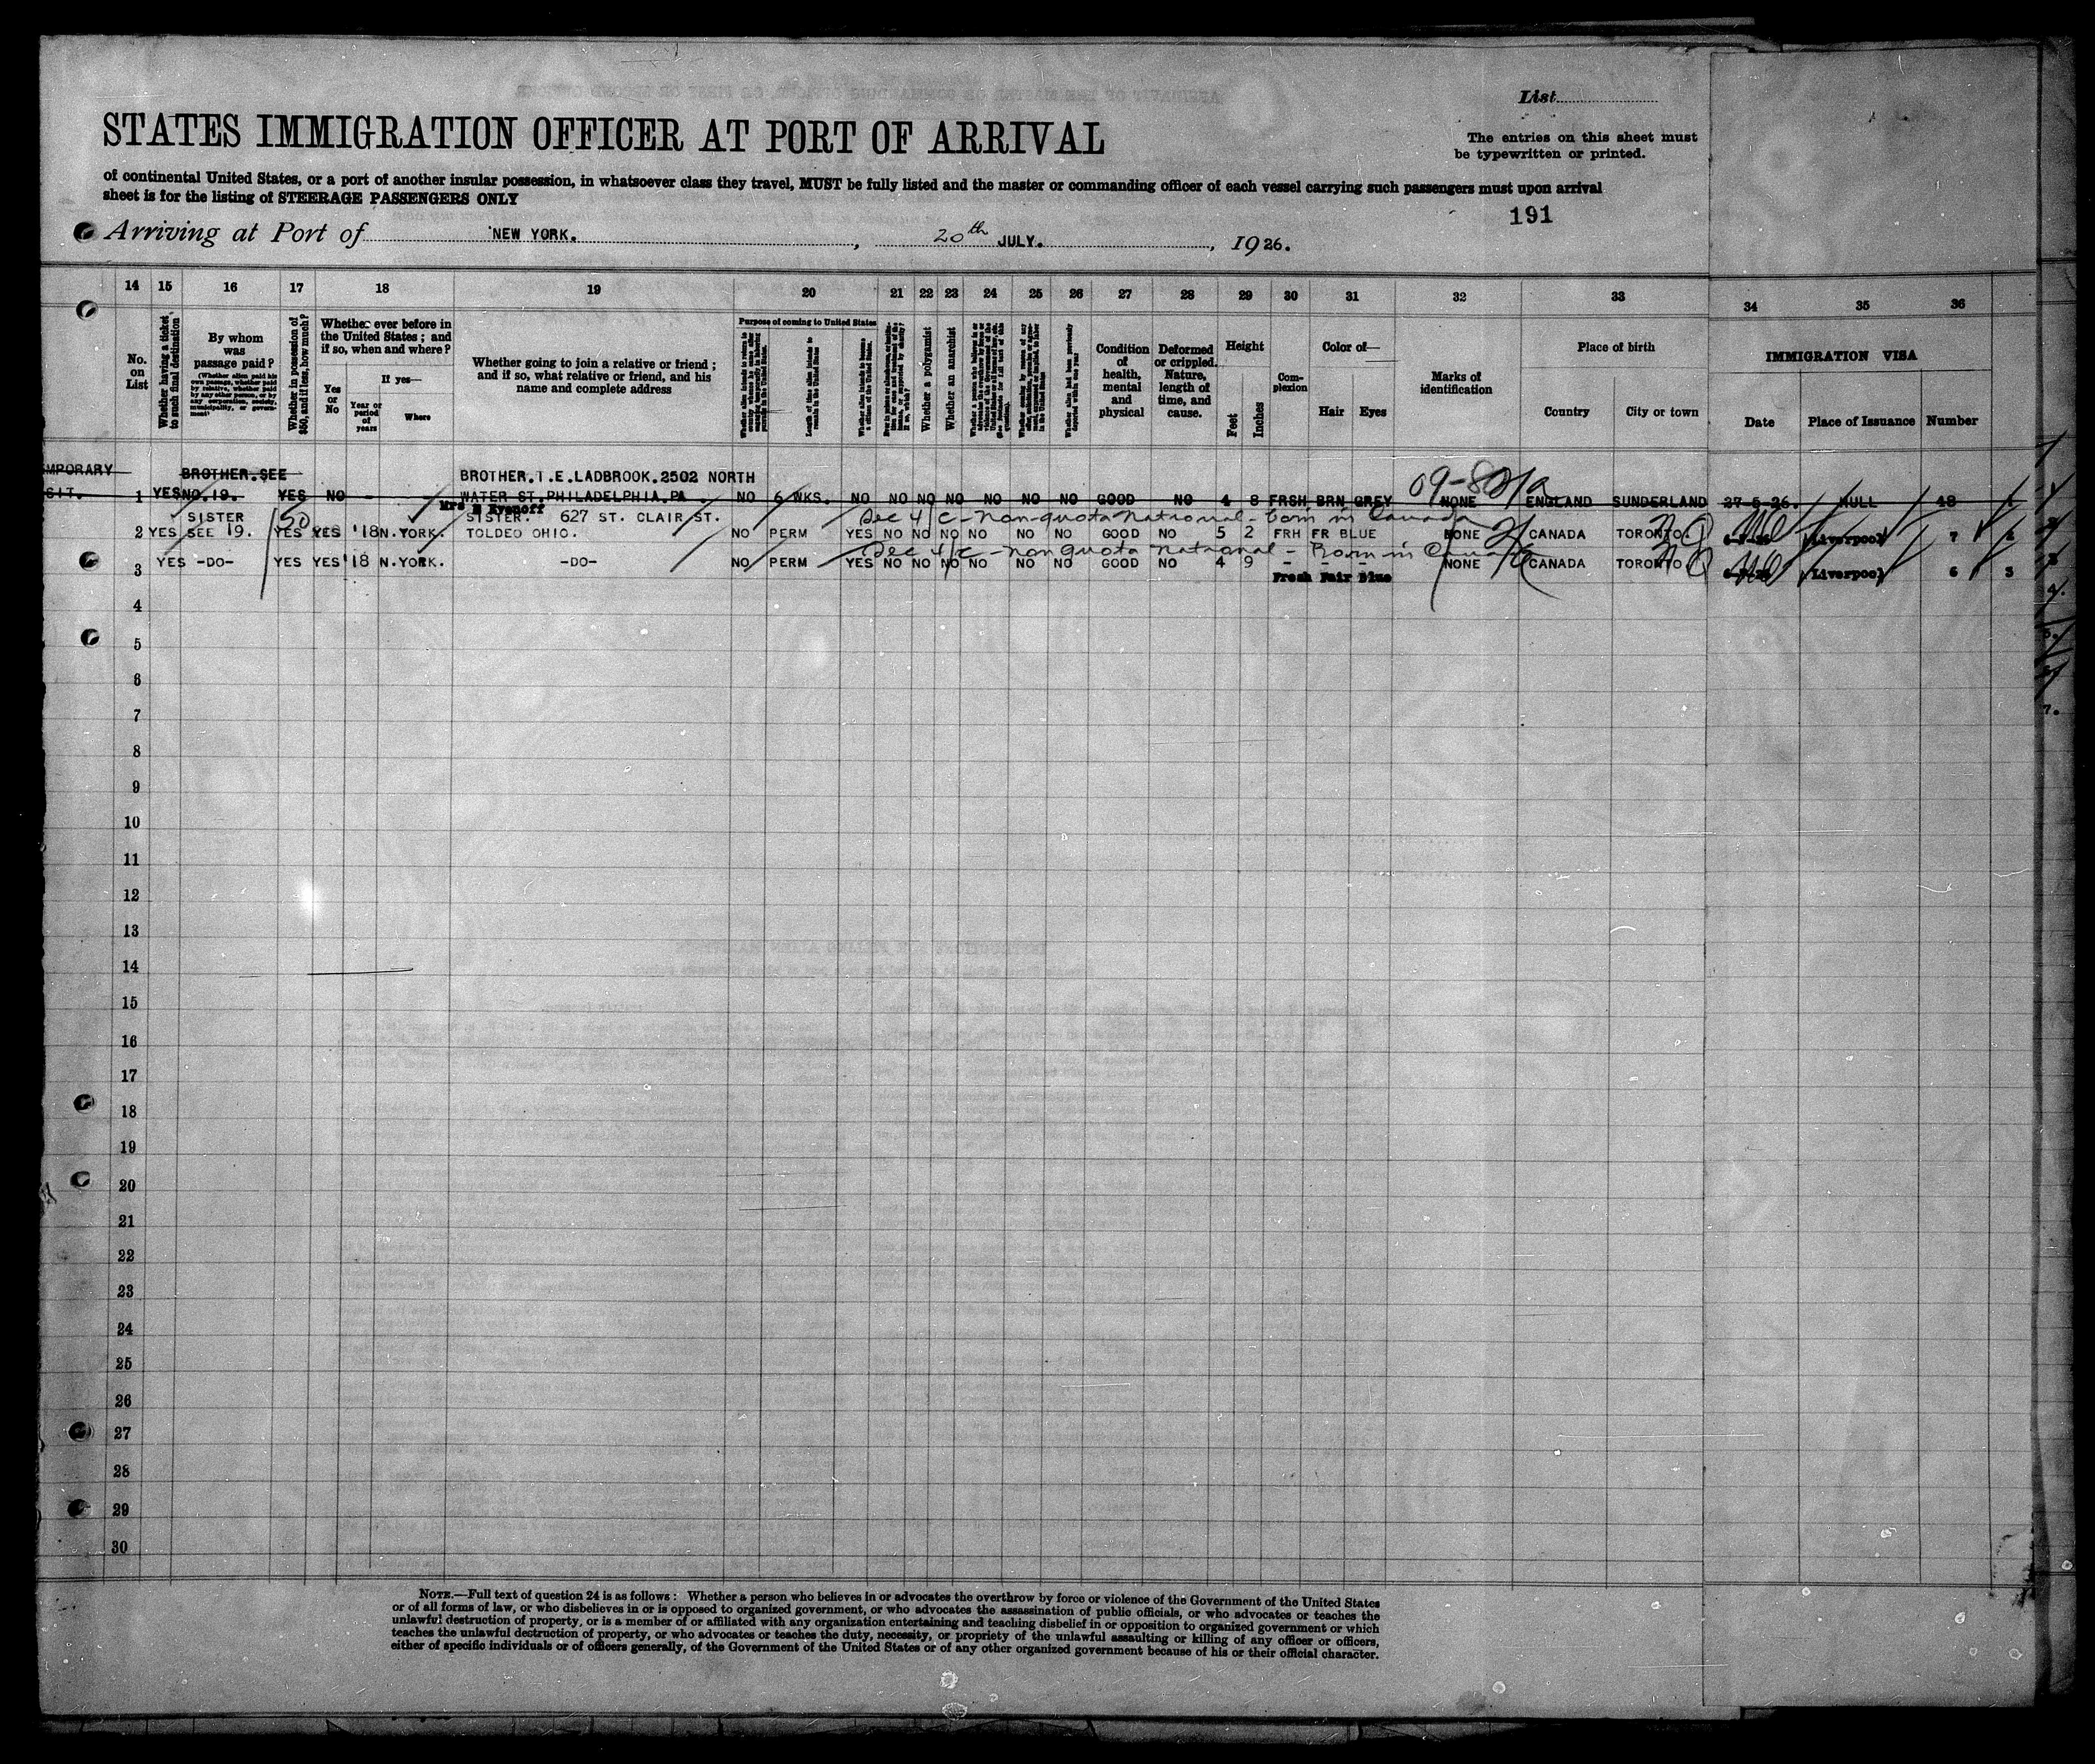 List
STATES IMMIGRATION OFFICER AT PORT OF ARRIVAL
The entries on this sheet must
be typewritten or printed.
of continental United States, or a port of another insular possession, in whatsoever class they travel, MUST be fully listed and the master or commanding officer of each vessel carrying such passengers must upon arrival
sheet is for the listing of STEERAGE PASSENGERS ONLY
191
Arriving at Port of NEW YORK. , 20th JULY. , 1926.
14 15 16 17 18 19 20 21 22 23 24 25 26 27 28 29 30 31 32 33 34 35 36
No. on List
Whether having a ticket to such final destination
By whom was passage paid?
(Whether alien paid his own passage, whether paid by relative, whether paid by any other person, or by any corporation, society, municipality, or government)
Whether in possession of $50, and if less, how much?
Whether ever before in the United States; and if so, when and where?
Yes or No
If yes—
Year or period of years
Where
Whether going to join a relative or friend; and if so, what relative or friend, and his name and complete address
Purpose of coming to United States
Length of time alien intends to remain in the United States
Whether alien intends to become a citizen of the United States.
Whether a polygamist
Whether an anarchist
Condition of health, mental and physical
Deformed or crippled. Nature, length of time, and cause.
Height
Feet
Inches
Complexion
Color of—
Hair
Eyes
Marks of identification
Place of birth
Country
City or town
IMMIGRATION VISA
Date
Place of Issuance
Number
MPORARY BROTHER.SEE BROTHER.T.E.LADBROOK.2502 NORTH 09-
SIT. 1 YES NO.19. YES NO - - WATER ST.PHILADELPHIA.PA. NO 6 WKS. NO NO NO NO NO NO NO GOOD NO 4 8 FRSH BRN GREY NONE ENGLAND SUNDERLAND 27-5-26. HULL 48 1
Mrs Kysnoff
SISTER 50 SISTER. 627 ST. CLAIR ST. Sec 4/c - non-quota national - born in Canada
2 YES SEE 19. YES YES '18 N.YORK. TOLDEO OHIO. NO PERM YES NO NO NO NO NO NO GOOD NO 5 2 FRH FR BLUE NONE CANADA TORONTO. Liverpool 7 2
Sec 4/c - non quota national - Born in Canada
3 YES -DO- YES YES '18 N.YORK. -DO- NO PERM YES NO NO NO NO NO NO GOOD NO 4 9 - - - NONE CANADA TORONTO Liverpool 6 3
Fresh Fair Blue
4
5
6
7
8
9
10
11
12
13
14
15
16
17
18
19
20
21
22
23
24
25
26
27
28
29
30
NOTE.—Full text of question 24 is as follows: Whether a person who believes in or advocates the overthrow by force or violence of the Government of the United States
or of all forms of law, or who disbelieves in or is opposed to organized government, or who advocates the assassination of public officials, or who advocates or teaches the
unlawful destruction of property, or is a member of or affiliated with any organization entertaining and teaching disbelief in or opposition to organized government or which
teaches the unlawful destruction of property, or who advocates or teaches the duty, necessity, or propriety of the unlawful assaulting or killing of any officer or officers,
either of specific individuals or of officers generally, of the Government of the United States or of any other organized government because of his or their official character.